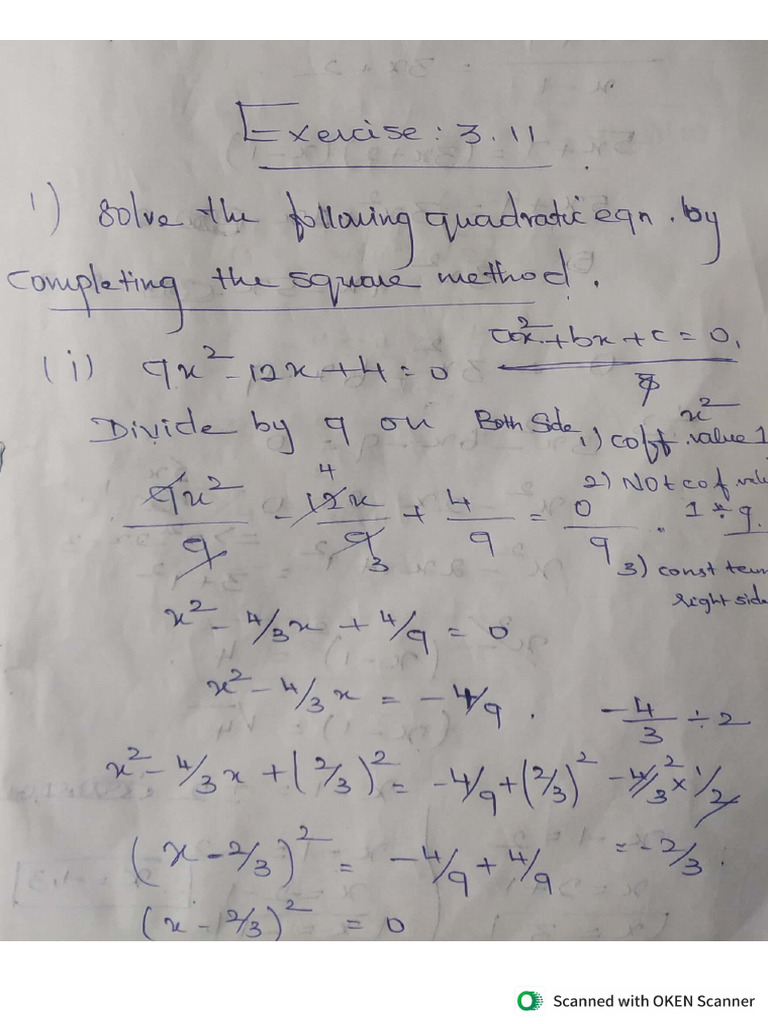 Exercise: 3.11
1) Solve the following quadratic eqn. by
completing the square method.
(i) 9x² - 12x + 4 = 0
ax² + bx + c = 0,
Divide by 9 on Both Side
x²
1) coff. value 1
2) Not cof. valu
1 ÷ 9.
3) const term
right side
9x²/9 - 12x/9 + 4/9 = 0/9
4
3
x² - 4/3x + 4/9 = 0
x² - 4/3x = -4/9.
-4/3 ÷ 2
x² - 4/3x + (2/3)² = -4/9 + (2/3)²
-4/3 × 1/2
2
(x - 2/3)² = -4/9 + 4/9
= -2/3.
(x - 2/3)² = 0
Scanned with OKEN Scanner